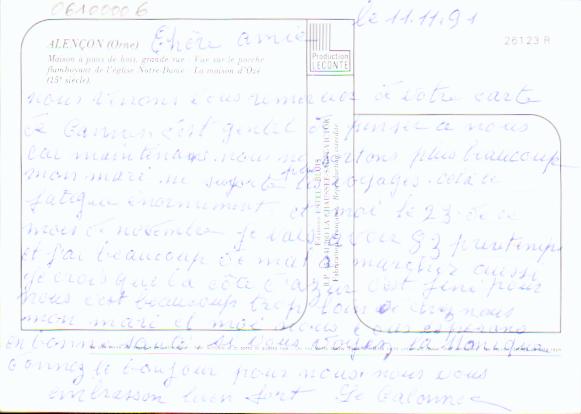 06100006
le 11.11.91
ALENÇON (Orne) Chère amie
Production
LECONTE
26123 R
Maison à pans de bois, grande rue - Vue sur le porche
flamboyant de l'église Notre-Dame - La maison d'Ozé
(15e siècle).
nous venons vous remercier de votre carte
de Cannes c'est gentil de penser a nous
car maintenant nous ne sortons plus beaucoup
mon mari ne supporte plus les voyages cela le
fatigue énormément et moi le 23 de ce
mois de novembre je vais avoir 83 printemps
et j'ai beaucoup de mal à marcher aussi
je crois que la côte d'azur c'est fini pour
nous c'est beaucoup trop loin de chez nous
mon mari et moi nous vous espérons
en bonne santé si vous voyez la Monique
donnez le bonjour pour nous nous vous
embrassons bien fort